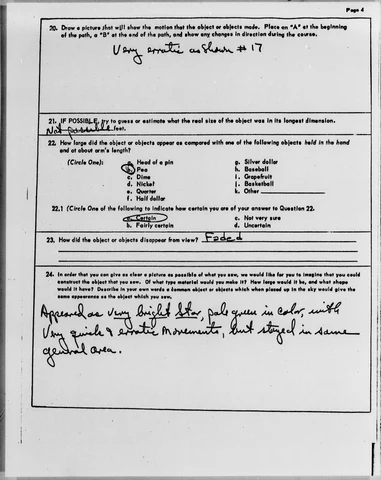 Page 4
20. Draw a picture that will show the motion that the object or objects made. Place an "A" at the beginning
of the path, a "B" at the end of the path, and show any changes in direction during the course.
Very erratic as shown #17
21. IF POSSIBLE, try to guess or estimate what the real size of the object was in its longest dimension.
Not possible feet.
22. How large did the object or objects appear as compared with one of the following objects held in the hand
and at about arm's length?
(Circle One): a. Head of a pin g. Silver dollar
b. Pea h. Baseball
c. Dime i. Grapefruit
d. Nickel j. Basketball
e. Quarter k. Other
f. Half dollar
22.1 (Circle One of the following to indicate how certain you are of your answer to Question 22.
a. Certain c. Not very sure
b. Fairly certain d. Uncertain
23. How did the object or objects disappear from view? Faded
24. In order that you can give as clear a picture as possible of what you saw, we would like for you to imagine that you could
construct the object that you saw. Of what type material would you make it? How large would it be, and what shape
would it have? Describe in your own words a common object or objects which when placed up in the sky would give the
same appearance as the object which you saw.
Appeared as very bright star, pale green in color, with
Very quick & erratic movements, but stayed in same
general area.